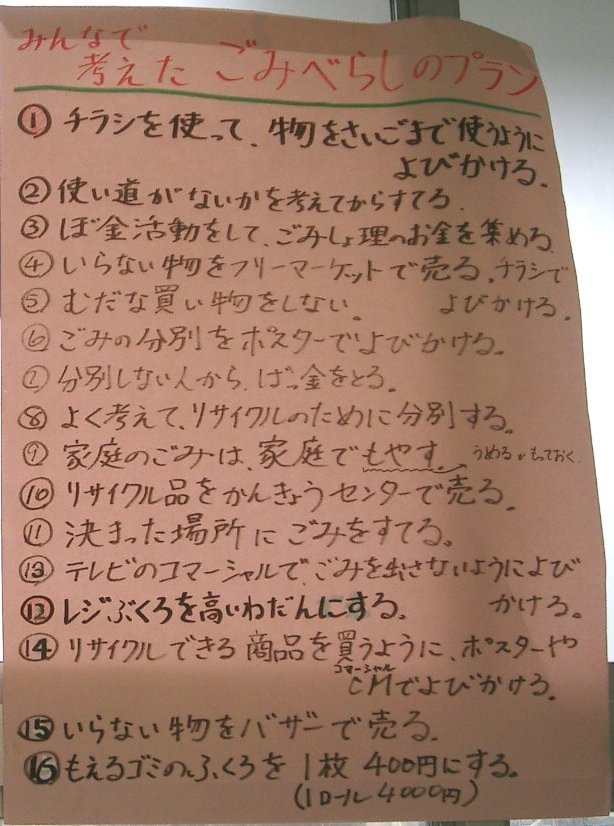 みんなで
考えた ごみべらしのプラン
① チラシを使って、物をさいごまで使うように
よびかける。
② 使い道がないかを考えてからすてる。
③ ぼ金活動をして、ごみしょ理のお金を集める
④ いらない物をフリーマーケットで売る。チラシで
よびかける。
⑤ むだな買い物をしない。
⑥ ごみの分別をポスターでよびかける。
⑦ 分別しない人から、ばっ金をとる。
⑧ よく考えて、リサイクルのために分別する。
⑨ 家庭のごみは、家庭でもやす。 うめる、もっておく
⑩ リサイクル品をかんきょうセンターで売る。
⑪ 決まった場所にごみをすてる。
⑫ テレビのコマーシャルで、ごみを出さないようによび
かける。
⑬ レジぶくろを高いねだんにする。
⑭ リサイクルできる商品を買うように、ポスターや
コマーシャル
CMでよびかける。
⑮ いらない物をバザーで売る。
⑯ もえるゴミのふくろを 1枚 400円にする。
(1ロール 4000円)